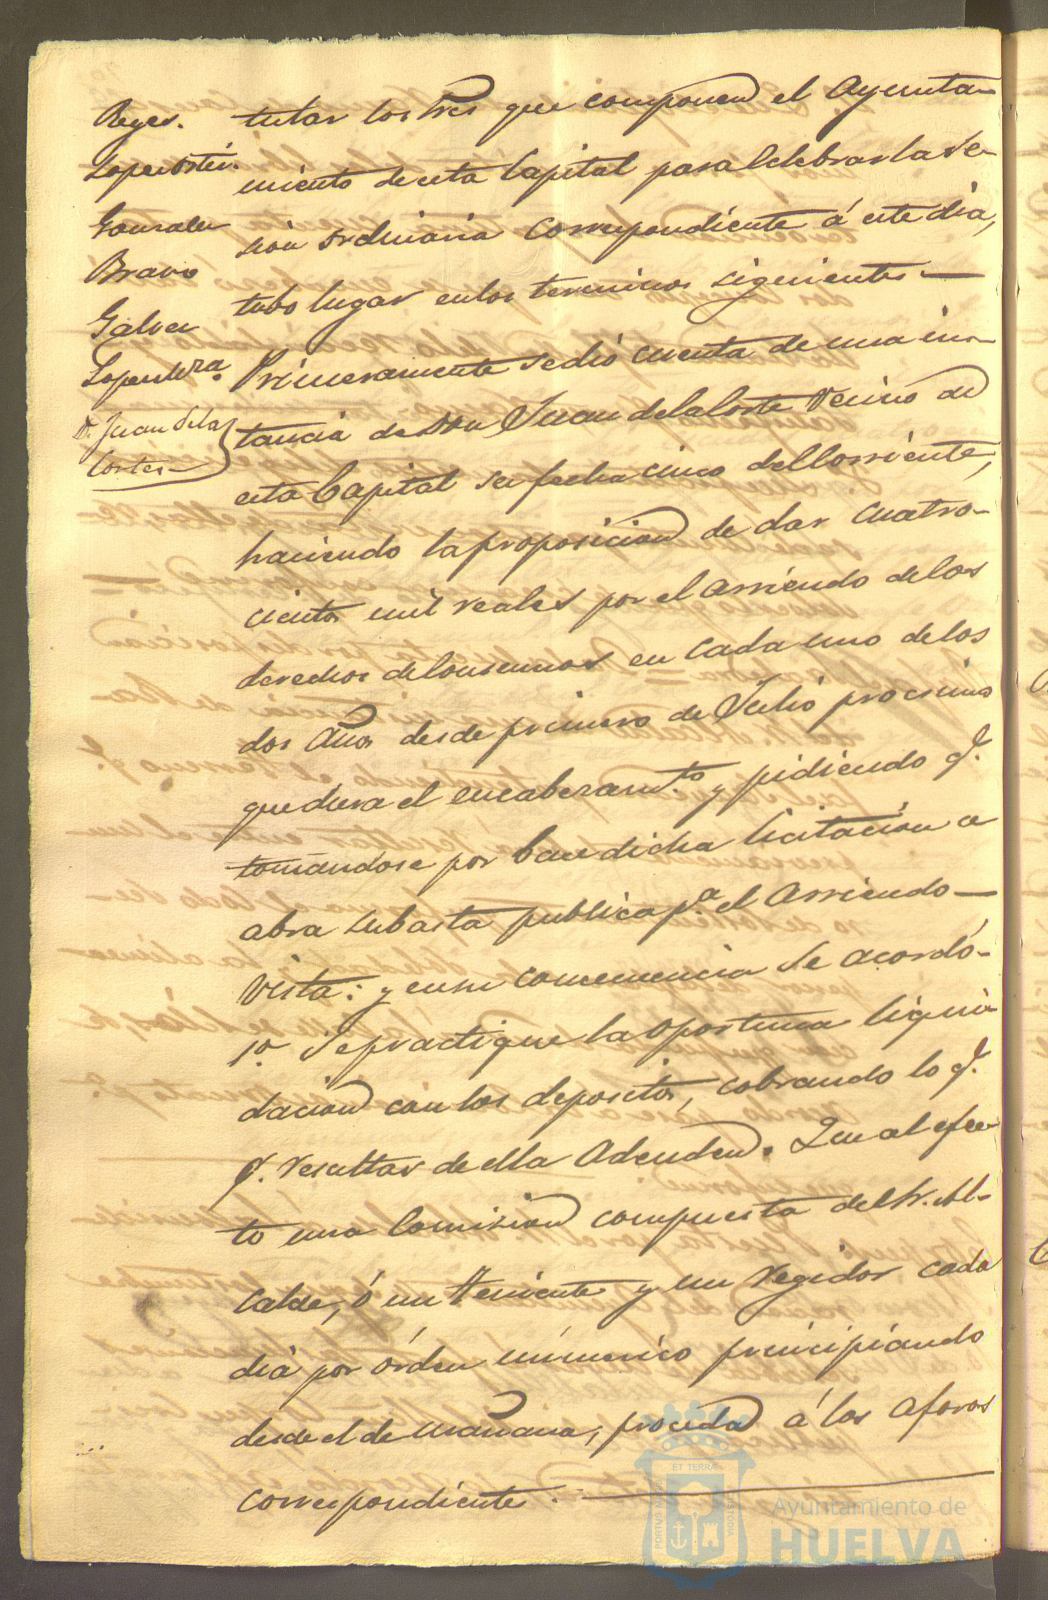 Reyes.
Lopez Ortiz.
Gonzalez
Bravo
Galvez
D. Juan de la
Cortes
tular los tres que componen el Ayunta-
miento de esta Capital para celebrar la Se-
sion ordinaria correspondiente á este dia,
tubo lugar en los terminos siguientes —
Primeramente se dió cuenta de una ins-
tancia de Don Juan de la Corte vecino de
esta Capital su fecha cinco del Corriente,
haciendo la proposicion de dar cuatro-
cientos mil reales por el arriendo de los
derechos de Consumos en cada uno de los
dos Años desde primero de Julio procsimo
que dura el encabezam.to y pidiendo q.
tomandose por base dicha licitacion se
abra subasta publica p.a el Arriendo —
Vista: y en su consecuencia se acordó.
1.o Se practique la oportuna liqui-
dacion con los depositos, cobrando lo q.
q. resultas de ella Adeuden. Que al efec-
to una Comision compuesta del Sr. Al-
calde, ó un Teniente y un Regidor cada
dia por órden númerico principiando
desde el de mañana, proceda á los aforos
correspondientes. —
PORTUS MARIS ET TERRAE CUSTODIA
Ayuntamiento de
HUELVA